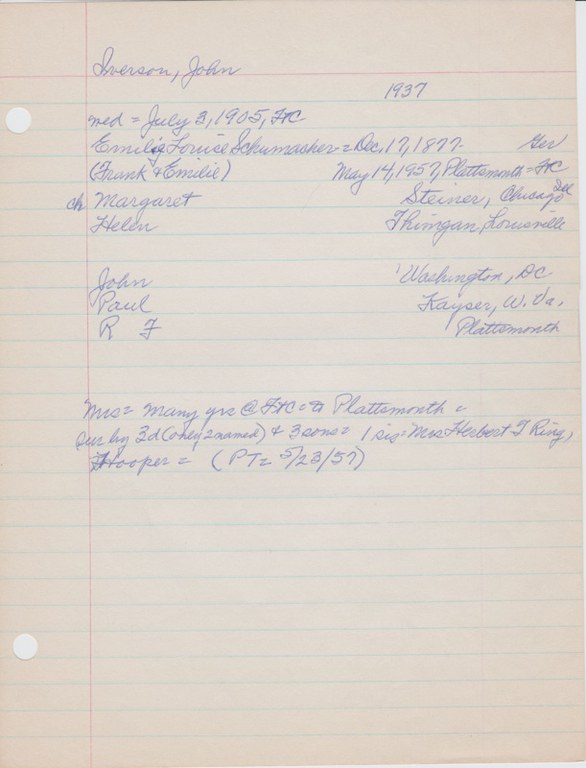 Iverson, John
1937
med = July 3, 1905, FtC
Emilie Louise Schumacher = Dec, 17, 1877 - Ger
(Frank & Emilie) May 14, 1957, Plattsmonth = FtC
ch Margaret Steiner, Chicago
Helen Thimgan, Louisville
John Washington, DC
Paul Kayser, W. Va.
R F Plattsmonth
Mrs = many yrs @ FtC = to Plattsmonth =
sur by 3d (only 2 named) & 3 sons = 1 sis = Mrs Herbert T Ring,
Hooper = (PT = 5/23/57)